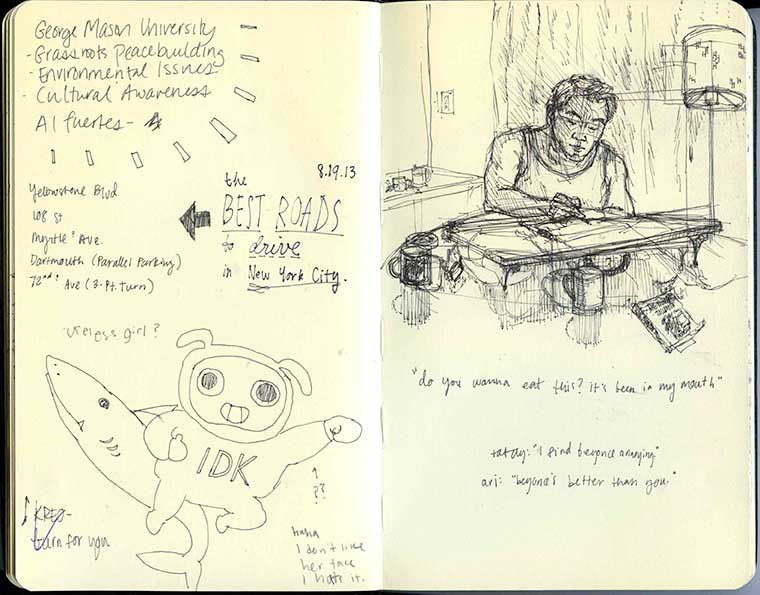 George Mason University
- Grassroots Peacebuilding
- Environmental Issues
- Cultural Awareness
Al Fuertes -
8.19.13
the
BEST ROADS
to drive
in New York City.
Yellowstone Blvd
108 St
Myrtle Ave.
Dartmouth (Parallel Parking)
72nd Ave (3-Pt. Turn)
"useless girl?
IDK
??
KREO-
turn for you
haha
I don't like
her face
I hate it.
"do you wanna eat this? it's been in my mouth"
tatay: "I find beyonce annoying"
ari: "beyonce's better than you."